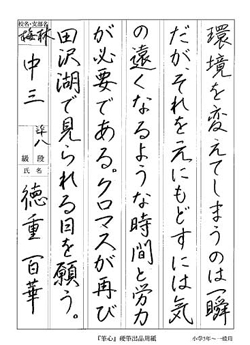 環境を変えてしまうのは一瞬
だがそれを元にもどすには気
の遠くなるような時間と労力
が必要である。クロマスが再び
田沢湖で見られる日を願う。
校名・支部名
梅林
中三
級 段
八
氏名
徳重百華
『筆心』硬筆出品用紙
小学5年~一般用